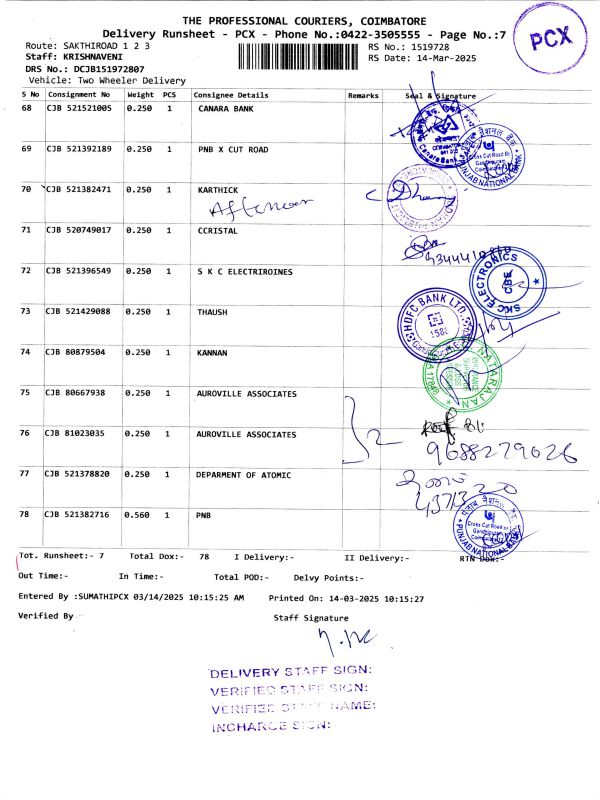 THE PROFESSIONAL COURIERS, COIMBATORE
Delivery Runsheet - PCX - Phone No.:0422-3505555 - Page No.:7
PCX
Route: SAKTHIROAD 1 2 3
RS No.: 1519728
Staff: KRISHNAVENI
RS Date: 14-Mar-2025
DRS No.: DCJB151972807
Vehicle: Two Wheeler Delivery
S No Consignment No Weight PCS Consignee Details Remarks Seal & Signature
68 CJB 521521005 0.250 1 CANARA BANK
69 CJB 521392189 0.250 1 PNB X CUT ROAD
PUNJAB NATIONAL BANK
70 CJB 521382471 0.250 1 KARTHICK
71 CJB 520749017 0.250 1 CCRISTAL
72 CJB 521396549 0.250 1 S K C ELECTRIROINES
SKC ELECTRONICS
CBE
73 CJB 521429088 0.250 1 THAUSH
HDFC BANK LTD
74 CJB 80879504 0.250 1 KANNAN
NATARAJAN
75 CJB 80667938 0.250 1 AUROVILLE ASSOCIATES
76 CJB 81023035 0.250 1 AUROVILLE ASSOCIATES
2
9688279626
77 CJB 521378820 0.250 1 DEPARMENT OF ATOMIC
78 CJB 521382716 0.560 1 PNB
PUNJAB NATIONAL BANK
Tot. Runsheet:- 7 Total Dox:- 78 I Delivery:- II Delivery:- RTN Dox:-
Out Time:- In Time:- Total POD:- Delvy Points:-
Entered By :SUMATHIPCX 03/14/2025 10:15:25 AM Printed On: 14-03-2025 10:15:27
Verified By Staff Signature
DELIVERY STAFF SIGN:
VERIFIED STAFF SIGN:
VERIFIED STAFF NAME:
INCHARGE SIGN: